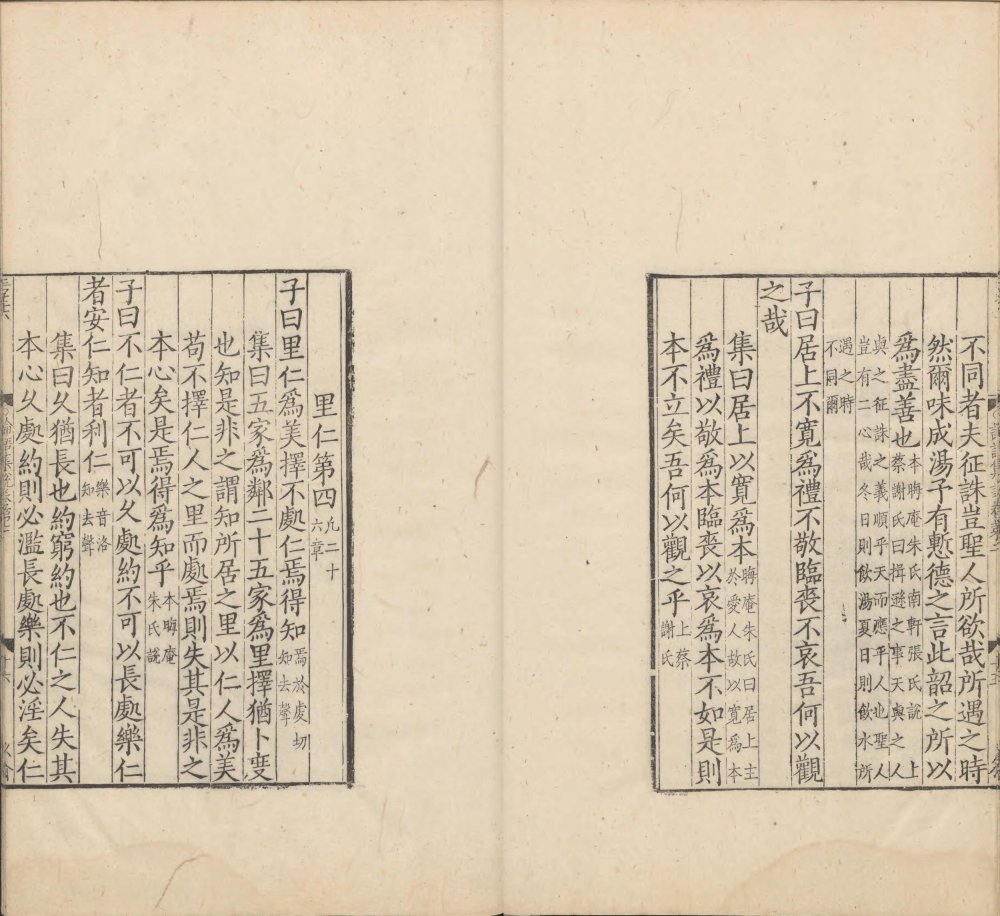 不同者夫征誅豈聖人所欲哉所遇之時
然爾味成湯予有慙德之言此韶之所以
爲盡善也本晦庵朱氏南軒張氏說上
蔡謝氏曰揖遜之事天與之人
與之征誅之義順乎天而應乎人也聖人
豈有二心哉冬日則飲湯夏日則飲水所
遇之時
不同爾
子曰居上不寬爲禮不敬臨喪不哀吾何以觀
之哉
集曰居上以寬爲本晦庵朱氏曰居上主
於愛人故以寬爲本
爲禮以敬爲本臨喪以哀爲本不如是則
本不立矣吾何以觀之乎上蔡
謝氏
里仁第四凡二十
六章
子曰里仁爲美擇不處仁焉得知焉於虔切
知去聲
集曰五家爲鄰二十五家爲里擇猶卜度
也知是非之謂知所居之里以仁人爲美
苟不擇仁人之里而處焉則失其是非之
本心矣是焉得爲知乎本晦庵
朱氏說
子曰不仁者不可以久處約不可以長處樂仁
者安仁知者利仁樂音洛
知去聲
集曰久猶長也約窮約也不仁之人失其
本心久處約則必濫長處樂則必淫矣仁